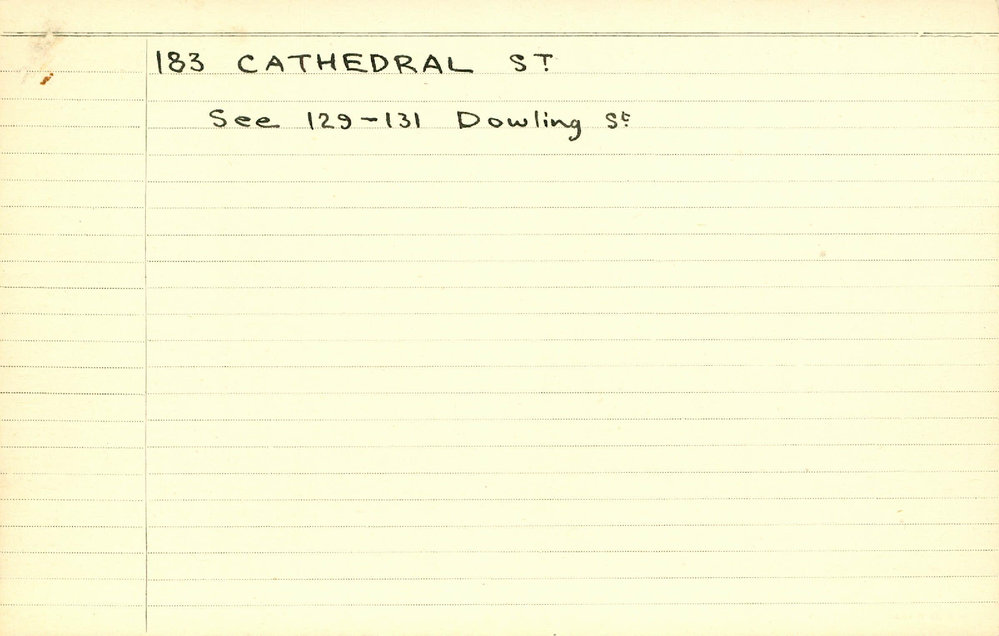 183 CATHEDRAL ST
See 129-131 Dowling St